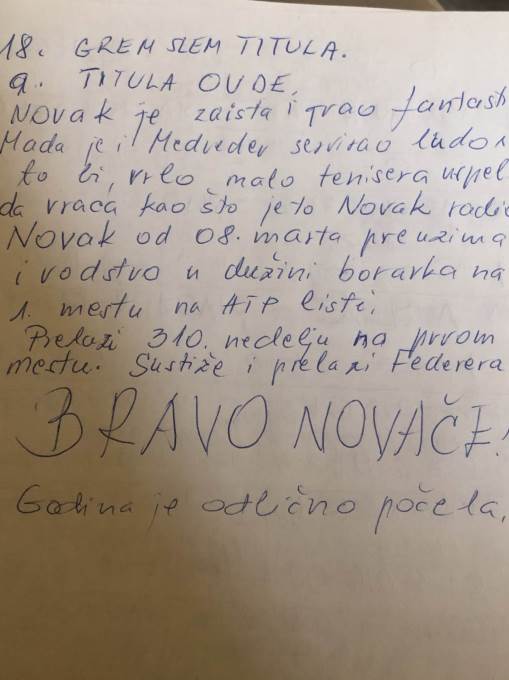 18. GREM SLEM TITULA.
9. TITULA OVDE.
NOVAK je zaista igrao fantasti
Mada je i Medvedev servirao ludo i
to bi, vrlo malo tenisera uspel
da vraca kao što je to Novak radi
NOVAK od 08. marta preuzima
i vodstvo u dužini boravka na
1. mestu na ATP listi.
Prelazi 310. nedelju na prvom
mestu. Sustiže i prelazi Federera
BRAVO NOVAČE!
Godina je odlično počela.